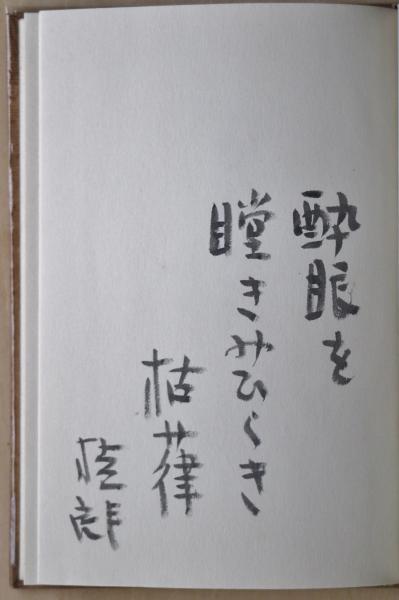 酔眼を
瞠きみひらき
枯葎
桂郎